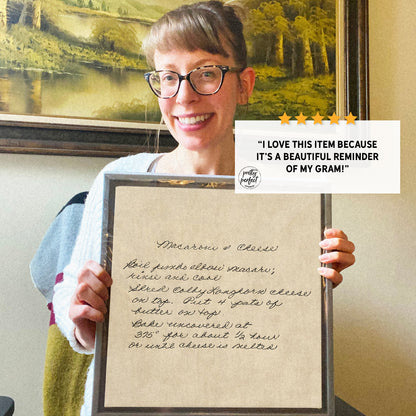 “I LOVE THIS ITEM BECAUSE
IT’S A BEAUTIFUL REMINDER
OF MY GRAM!”
pretty
perfect
Macaroni & Cheese
Boil elbow macari;
rinse and cool
Shred Colby Longhorn cheese
on top. Put 4 pats of
butter on top
Bake uncovered at
375° for about ½ hour
or until cheese is melted